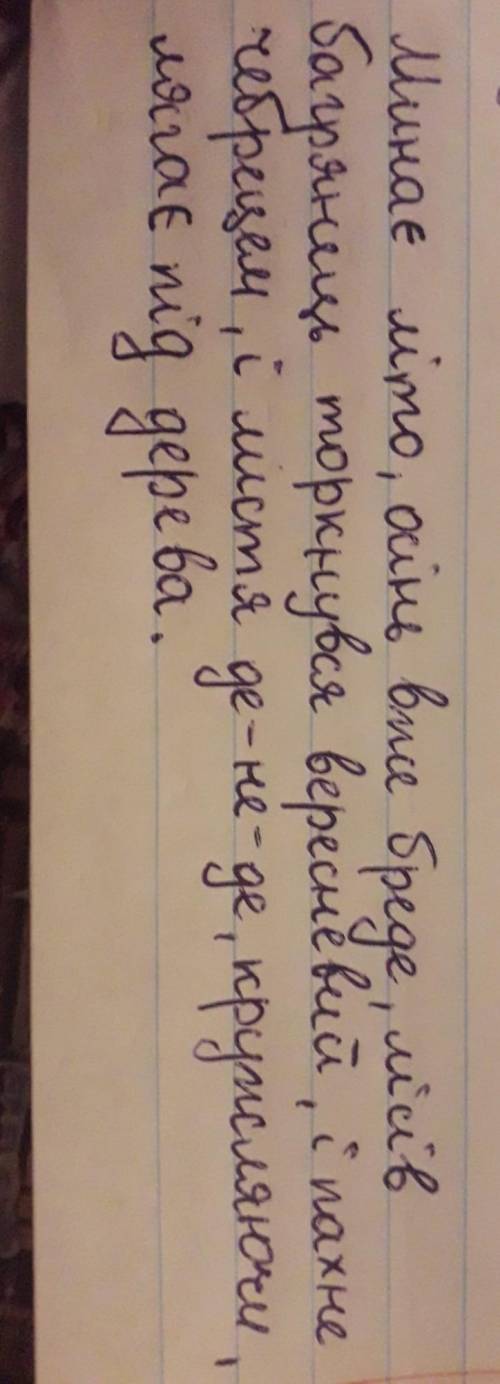 Минає літо, осінь вже бреде, лісів
багрянець торкнувся вересневий, і пахне
чебрецем, і листя де-не-де, кружляючи,
лягає під дерева.